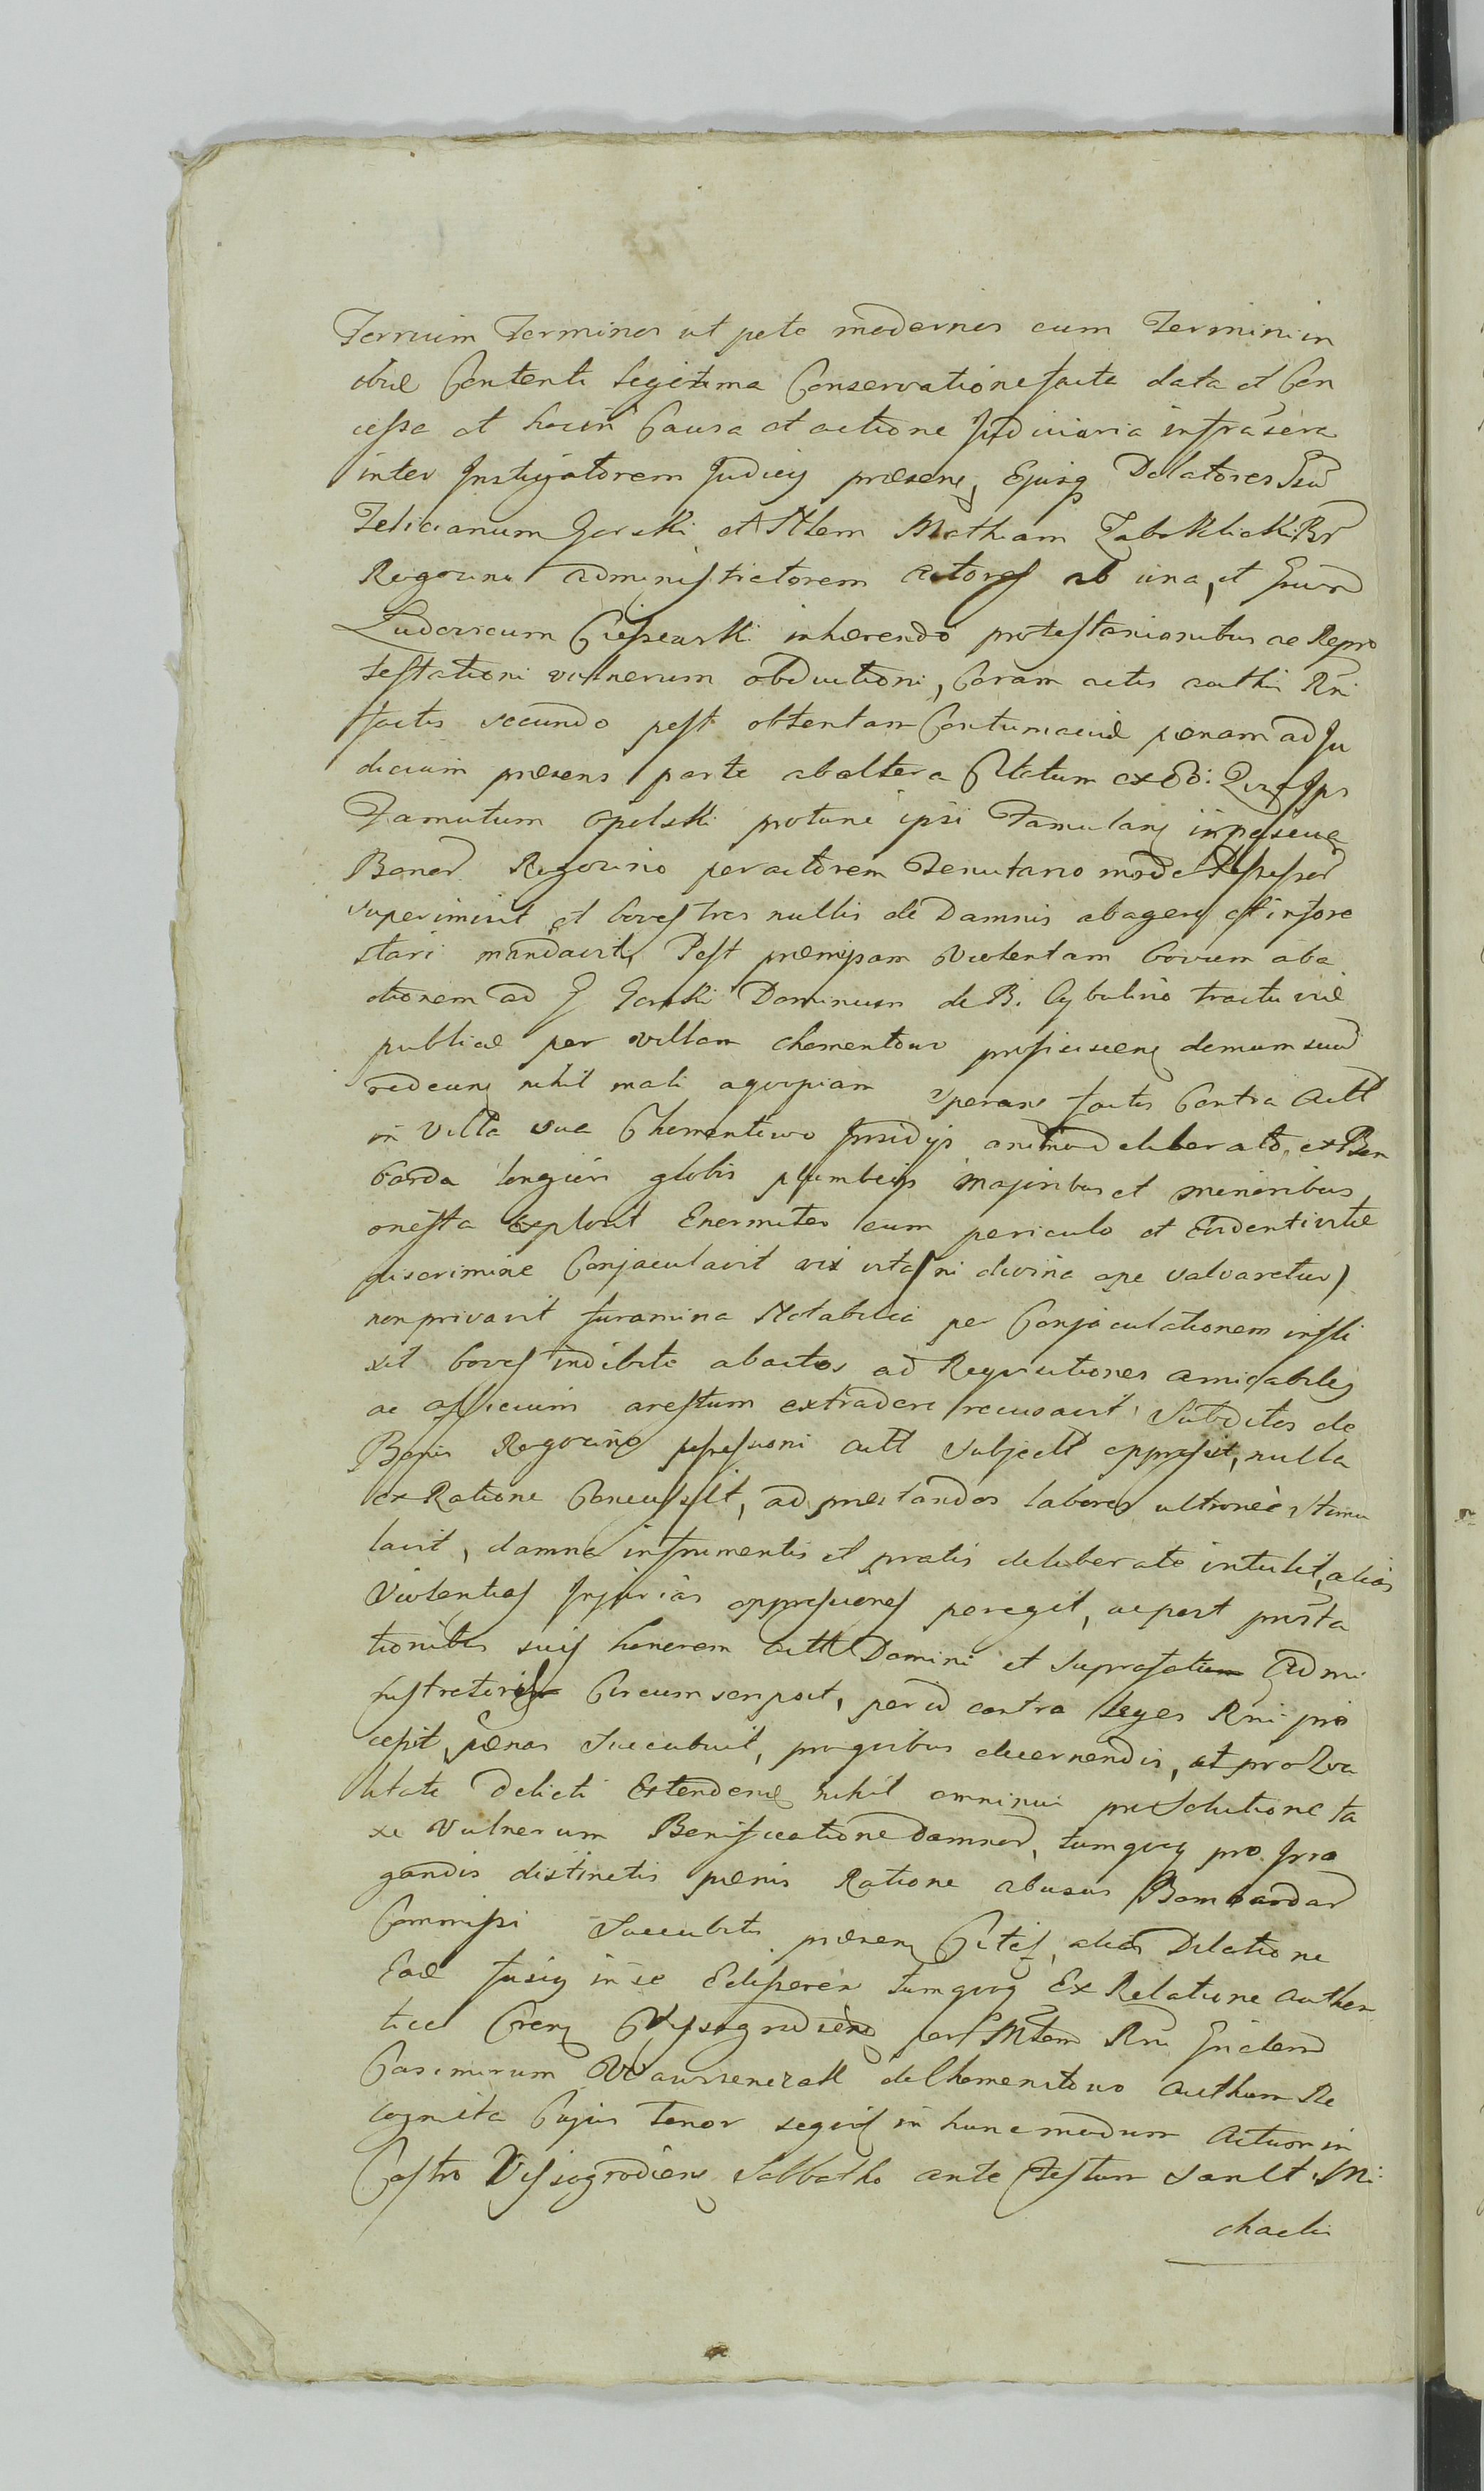 Termini Terminos ut pote modernos cum Termini in
Contenti Legitima Conservatione facta data et Con
cessa et hacin Causa et actione Judiciaria infra
inter Instigatorem Judicij præsens Ejusq Delatores
Felicianum Gorski et Mathiam
Rogowino administratorem actores ab una, et
Ludovicum inhærendo protestationibus ac Repro
testationi vulnerum obductioni, Coram actis authen Rni
factis secundo post obtentam Contumaciæ pænam ad Ju
dicium præsens parte ab altera Citatum
Famulum Opolski protunc ipsi Famulans
Bonor Rogowino per actorem Tenutario modo
superimisit et boves tres nullis de Damnis abagens
stari mandavit, Post præmissam Violentam bovum aba
ctionem ad G Gorski Dominum de B. Cybulino tractu viæ
publicæ per villam Chomentowo proficiscens domum suam
redeuns nihil mali sperans factis Contra Actt
in Villa sua Chomentowo Insidijs animo deliberato, ex Bom
barda longiori globis plumbeijs Majoribus et minoribus
onesta Explosit Enormiter cum periculo et Evidenti vitæ
discrimine Conjaculavit vix vita (ni divina ope salvaretur)
non privavit foramina Notabilia per Conjaculationem infli
xit boves indebite abactos ad Requisitiones amicabiles
ac officium arestum extradere recusavit, Subditos de
Bonis Rogowino possessioni actt Subject oppressit, nulla
ex Ratione Concussit, ad præstandos labores ultronee stimu
lavit, damna in frumentis et pratis deliberate intulit, alias
Violentias Injurias oppressiones peregit, ac post
tionibus suis honorem actt Domini et Suprafati Admi
nistratoris Circumscripsit, per id contra leges Rni pro
cessit, pænas Succubuit, pro quibus decernendis, ut pro Qua
litate delicti Extendens nihil omninus pro Solutione ta
xe Vulnerum Bonificatione damnor, tumquoq pro Irro
gandis distinctis pænis Ratione abusus Bombardar
Commissi Succubitis pænarum Citat, alias Delatione
Eæ fusiq in se tumquoq Ex Relatione authen
tica Cren Wyssogrodiens per Mtem Rni
Casimirum de Chomentowo authen Re
cognita Cujus tenor sequit in hunc modum Actum in
Castro Vissogrodiens Sabbatho ante Festum Sanct Mi
chaelis